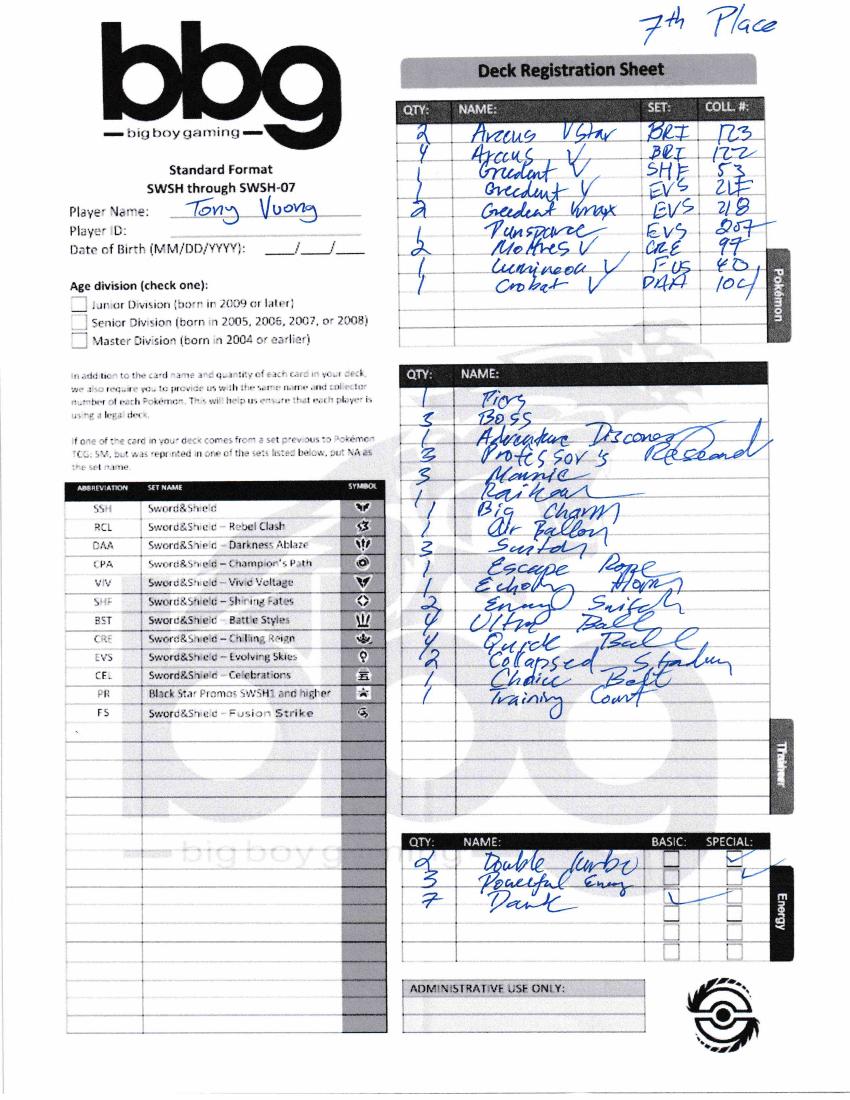 7th Place
bbg
big boy gaming
Deck Registration Sheet
Standard Format
SWSH through SWSH-07
Player Name: Tony Vuong
Player ID:
Date of Birth (MM/DD/YYYY): ___/___/___
Age division (check one):
Junior Division (born in 2009 or later)
Senior Division (born in 2005, 2006, 2007, or 2008)
Master Division (born in 2004 or earlier)
In addition to the card name and quantity of each card in your deck,
we also require you to provide us with the same name and collector
number of each Pokémon. This will help us ensure that each player is
using a legal deck.
If one of the card in your deck comes from a set previous to Pokémon
TCG: SM, but was reprinted in one of the sets listed below, put NA as
the set name.
ABBREVIATION SET NAME SYMBOL
SSH Sword&Shield
RCL Sword&Shield – Rebel Clash
DAA Sword&Shield – Darkness Ablaze
CPA Sword&Shield – Champion's Path
VIV Sword&Shield – Vivid Voltage
SHF Sword&Shield – Shining Fates
BST Sword&Shield – Battle Styles
CRE Sword&Shield – Chilling Reign
EVS Sword&Shield – Evolving Skies
CEL Sword&Shield – Celebrations
PR Black Star Promos SWSH1 and higher
FS Sword&Shield – Fusion Strike
QTY: NAME: SET: COLL. #:
2 Arceus VStar BRI 123
4 Arceus V BRI 122
1 Greedent V SHF 53
1 Greedent V EVS 217
2 Greedent Vmax EVS 218
1 Dunsparce EVS 207
2 Moltres V CRE 97
1 Lumineon V FUS 40
1 Crobat V DAA 104
Pokémon
QTY: NAME:
1
3 Boss
1 Adventure Discovery
3 Professor's Research
3 Marnie
1 Raihan
1 Big Charm
1 Air Ballon
3 Switch
1 Escape Rope
1 Echoing Horn
2 Energy Switch
4 Ultra Ball
4 Quick Ball
2 Collapsed Stadium
1 Choice Belt
1 Training Court
Trainer
QTY: NAME: BASIC: SPECIAL:
2 Double Turbo
3 Powerful Energy
7 Dark
Energy
ADMINISTRATIVE USE ONLY:
big boy gaming